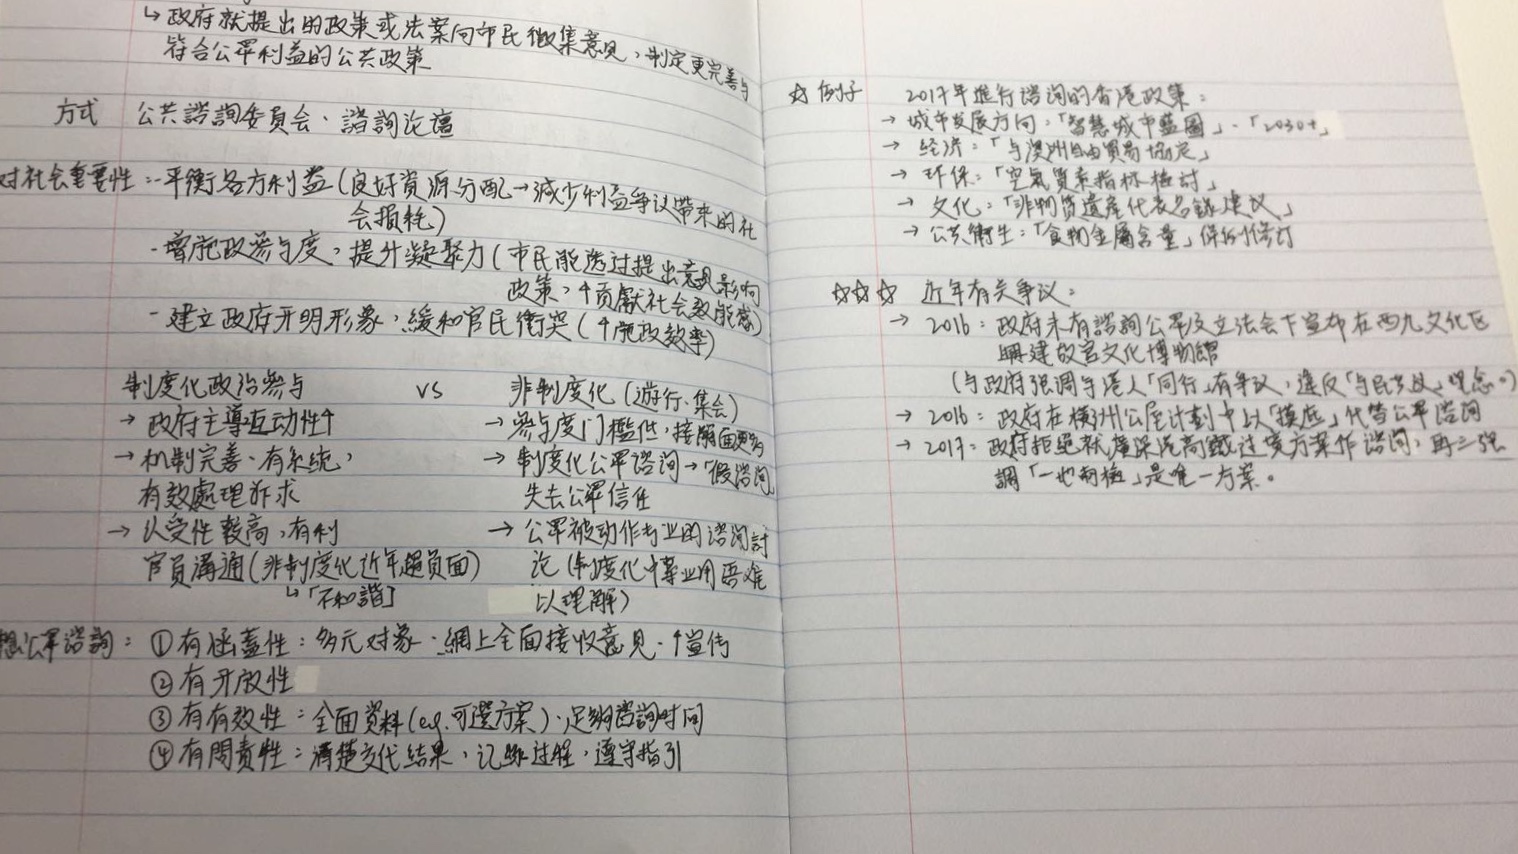 ↳ 政府就提出的政策或法案向市民徵集意見，制定更完善与
符合公眾利益的公共政策
方式 公共諮詢委員会、諮詢论壇
对社会重要性：-平衡各方利益(良好資源分配→減少利益争议帶來的社
会損耗)
-增施政參与度，提升凝聚力(市民能透过提出意見影响
政策，↑贡獻社会效能感)
-建立政府开明形象，緩和官民衝突(↑施政效率)
制度化政治參与 VS 非制度化(遊行、集会)
→ 政府主導互动性↑ → 參与度门檻低，接觸面更多
→ 机制完善、有系統， → 制度化公眾諮詢→「假諮詢」
有效處理訴求 失去公眾信任
→ 认受性較高，有利 → 公眾被动作专业的諮詢討
官員溝通(非制度化近年趨負面) 论(制度化中專业用語难
↳「不和諧」 以理解)
想公眾諮詢：①有涵蓋性：多元对象、網上全面接收意見、↑宣传
②有开放性
③有有效性：全面資料(e.g.可選方案)、足夠諮詢时间
④有問責性：清楚交代結果，记錄过程，遵守指引
☆例子 2017年進行諮詢的香港政策：
→ 城市发展方向：「智慧城市藍圖」、「2030+」
→ 经济：「与澳洲自由貿易協定」
→ 环保：「空氣質素指标檢討」
→ 文化：「非物質遺産代表名錄建议」
→ 公共衛生：「食物金屬含量」條例修訂
☆☆☆ 近年有关争议：
→ 2016：政府未有諮詢公眾及立法会下宣布在西九文化区
興建故宫文化博物館
(与政府强調与港人「同行」有争议，違反「与民共议」理念。)
→ 2016：政府在橫洲公屋计劃中以「摸底」代替公眾諮詢
→ 2017：政府拒絕就廣深港高鐵过境方案作諮詢，再三强
調「一地兩檢」是唯一方案。